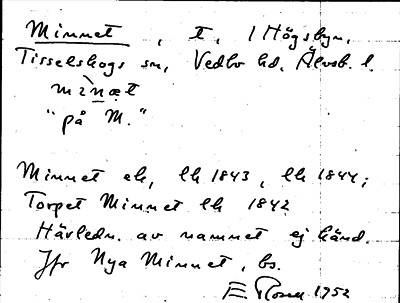 Minnet, t, / Högsbyn,
Tisselskogs sn, Vedbo hd. Älvsb. l.
mìnæt
"på M."
Minnet ek, lk 1843, lk 1844;
Torpet Minnet lk 1842
Härledn. av namnet ej känd.
Jfr Nya Minnet, bs.
E. Rosen 1952